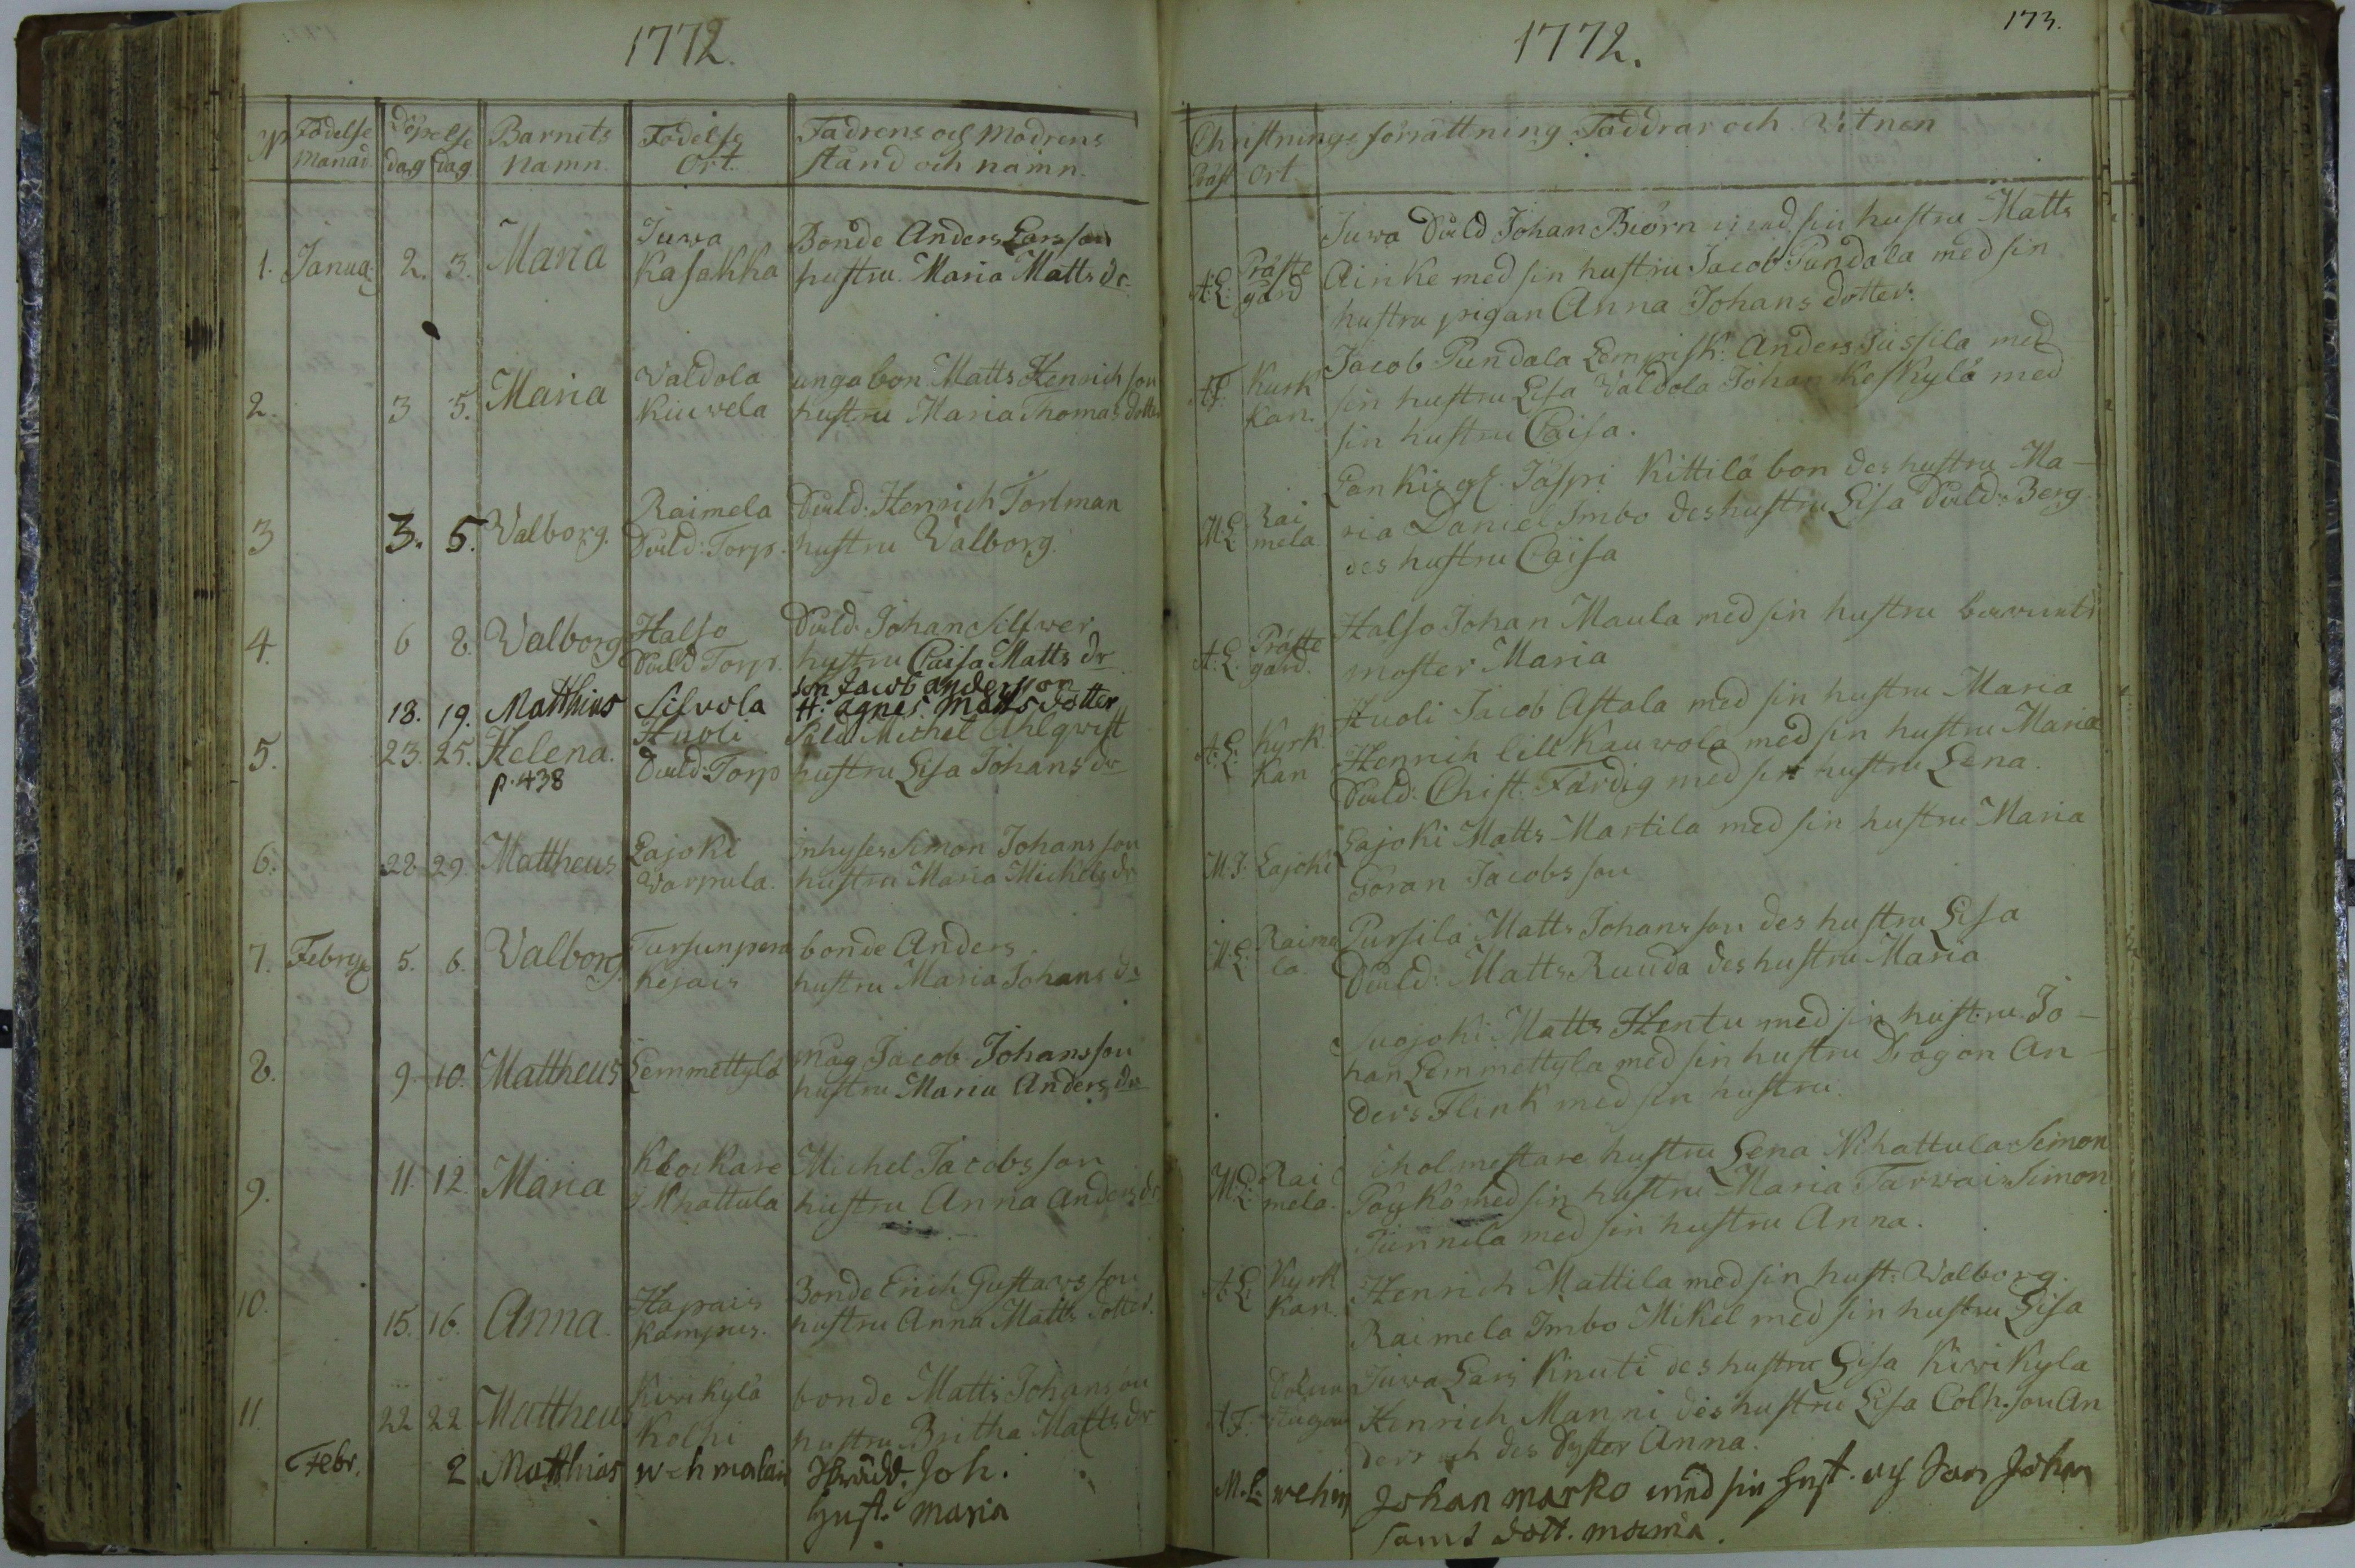 1772.
Födelse Döpelse Barnets Födelse Fadrens och Modrens
Månad dag dag Namn. Ort. stånd och namn.
1. Janua: 2. 3. Maria Juva Bonde Anders Larsson
Kasakka hustru Maria Matts dr
2. 3 5. Maria Valdola unga bon Matts Henrichson
Kiuwela hustru Maria Thomas dotter
3 3. 5. Valborg. Raimela Duld: Henrich Torlman
Duld: Torp. hustru Walborg.
4. 6 8. Valborg Halso Duld. Johan Silfwer
Duld Torp. hustru Caisa Matts dr
18. 19. Matthias Silvola son Jacob andersson
H. agnes Matts dotter
5. 23. 25. Helena. Huoli Michel Ahlqvist
p. 438 Duld: Torp hustru Lisa Johans dr
6. 28 29. Mattheus Lajoki Inhyses Simon Johansson
Varpula. hustru Maria Mickels dr
7. Febru: 5. 6. Valborg. Tursunpera bonde Anders
Kejais hustru Maria Johans dr
8. 9. 10. Mattheus Lemmettylä måg Jacob Johansson
hustru Maria Anders dr
9. 11. 12. Maria Klockare Michel Jacobsson
Nihattula hustru Anna Anders dr
10. 15. 16. Anna. Hapais Bonde Erich Gustavsson
Kampus. hustru Anna Matts dotter.
11. 22 22 Mattheus Kivikylä bonde Matts Johanson
Kolhi hustru Britha Matts dr
Febr. 2 Matthias Wehmalais Joh.
Hust. Maria
1772.
173.
Christnings förrättning Faddrar och Vitnen
Präst Ort.
Juwa Duld Johan Biörn med sin hustru Matts
A: L: Präste gård Ainke med sin hustru Jacob Pundala med sin
hustru pigan Anna Johans dotter.
Jacob Pundala Anders Jussila med
A F. Kyrk kan. sin hustru Lisa Valdola Johan Koskylä med
sin hustru Caisa.
Jäspi Kittilä bon des hustru Ma-
M: L: Rai mela ria Daniel Imbo des hustru Lisa Duld: Berg
des hustru Caisa
Halso Johan Maula med sin hustru
A: L. Präste gård. moster Maria
Huoli Jacob Astala med sin hustru Maria
A: L: Kyrk kan Henrich lill Kauwola med sin hustru Maria
Duld: Christ. Färdig med sin hustru Lena.
Lajoki Matts Martila med sin hustru Maria
M: F. Lajoki Göran Jacobsson
Pursila Matts Johansson des hustru Lisa
M: L: Raime la. Duld: Matts Ruuda des hustru Maria
Suojoki Matts Hentu med sin hustru Jo-
han Lemmettyla med sin hustru Dragon An-
ders Flink med sin hustru.
Scholmestare hustru Lena Nihattula Simon
M: L: Rai mela. Pöykö med sin hustru Maria Tarwais Simon
Junnila med sin hustru Anna.
A: L: Kyrk kan. Henrich Mattila med sin hust: Walborg.
Raimela Imbo Mikel med sin hustru Lisa
Juva Lars Knuti des hustru Lisa Kivikyla
A: F. Henrich Manni des hustru Lisa Colh. son An
ders och des Syster Anna.
M. L: Wehm Johan Marko med sin hust. och son Johan
samt dott. Maria.